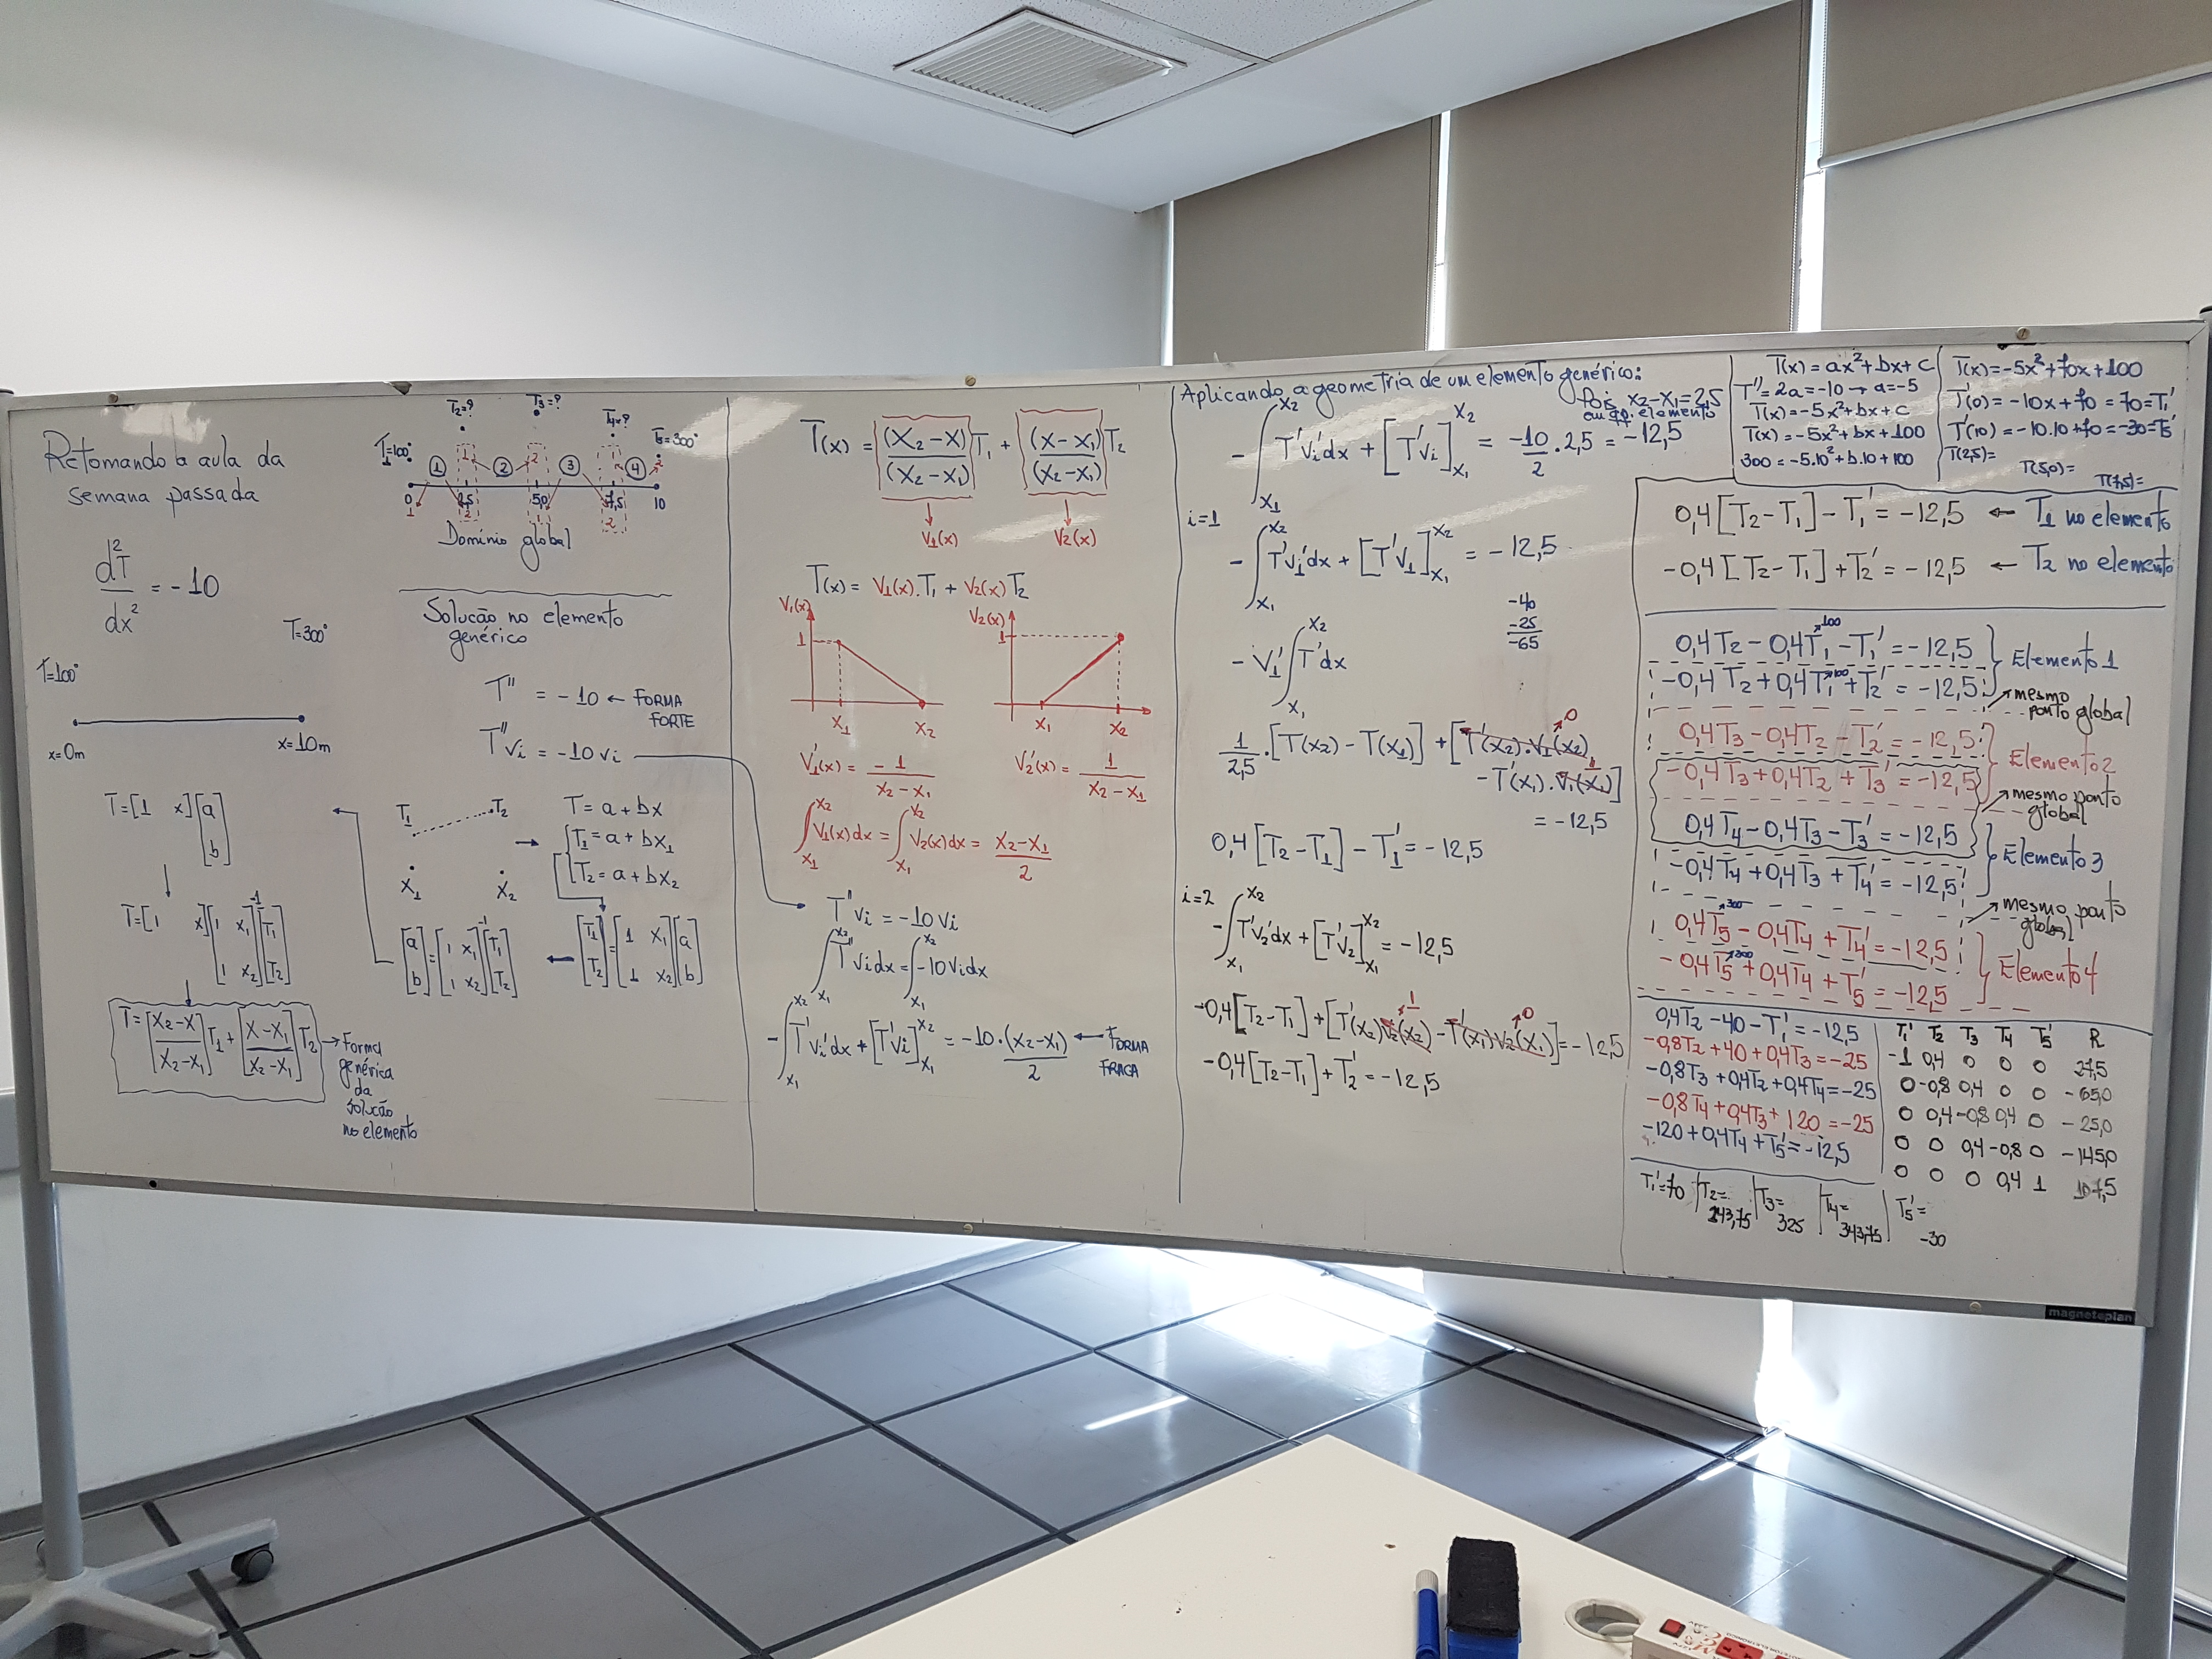 Retomando a aula da
semana passada
d²T/dx² = -10
T=300°
T=100°
x=0m
x=10m
T=[1 x][a b]
T=[1 x][1 x₁ 1 x₂]⁻¹[T₁ T₂]
T=[X₂-X/X₂-X₁]T₁+[X-X₁/X₂-X₁]T₂ → Forma
genérica
da
solução
no elemento
T₂=? T₃=? T₄=?
T₁=100° T₅=300°
1 2 3 4
0 2,5 5,0 7,5 10
Domínio global
Solução no elemento
genérico
T'' = -10 ← FORMA
FORTE
T''vi = -10vi
T₁ T₂
X₁ X₂
T=a+bx
T₁=a+bX₁
T₂=a+bX₂
[a b]=[1 x₁ 1 x₂]⁻¹[T₁ T₂]
[T₁ T₂]=[1 X₁ 1 X₂][a b]
T(x) = (X₂-X)/(X₂-X₁) T₁ + (X-X₁)/(X₂-X₁) T₂
V₁(x) V₂(x)
T(x)= V₁(x).T₁ + V₂(x)T₂
V₁(x) 1 X₁ X₂
V₂(x) 1 X₁ X₂
V₁'(x)= -1/X₂-X₁
V₂'(x)= 1/X₂-X₁
∫V₁(x)dx = ∫V₂(x)dx = X₂-X₁/2
T''vi = -10vi
∫T''vidx = ∫-10vidx
-∫T'vi'dx + [T'vi] = -10.(X₂-X₁)/2 ← FORMA
FRACA
Aplicando a geometria de um elemento genérico:
Pois X₂-X₁=2,5
em qq. elemento
-∫T'vi'dx + [T'vi] = -10/2 . 2,5 = -12,5
i=1
-∫T'v₁'dx + [T'v₁] = -12,5
-40
-25
-65
-V₁'∫T'dx
1/2,5 .[T(x₂)-T(x₁)] + [T'(x₂).V₁(x₂) 0
-T'(x₁).V₁(x₁)] 1
= -12,5
0,4[T₂-T₁]-T₁'=-12,5
i=2
-∫T'v₂'dx + [T'v₂] = -12,5
-0,4[T₂-T₁]+[T'(x₂)V₂(x₂)-T'(x₁)V₂(x₁)]=-12,5
-0,4[T₂-T₁]+T₂'=-12,5
T(x)=ax²+bx+c
T''=2a=-10→a=-5
T(x)=-5x²+bx+c
T(x)=-5x²+bx+100
300=-5.10²+b.10+100
T(x)=-5x²+70x+100
T'(0)=-10x+70=70=T₁'
T'(10)=-10.10+70=-30=T₅'
T(2,5)=
T(5,0)=
T(7,5)=
0,4[T₂-T₁]-T₁'=-12,5 ← T₁ no elemento
-0,4[T₂-T₁]+T₂'=-12,5 ← T₂ no elemento
0,4T₂-0,4T₁-T₁'=-12,5 100
Elemento 1
-0,4T₂+0,4T₁+T₂'=-12,5 100
mesmo
ponto global
0,4T₃-0,4T₂-T₂'=-12,5
Elemento 2
-0,4T₃+0,4T₂+T₃'=-12,5
mesmo ponto
global
0,4T₄-0,4T₃-T₃'=-12,5
Elemento 3
-0,4T₄+0,4T₃+T₄'=-12,5
mesmo ponto
global
0,4T₅-0,4T₄+T₄'=-12,5 300
Elemento 4
-0,4T₅+0,4T₄+T₅'=-12,5 300
0,4T₂-40-T₁'=-12,5
-0,8T₂+40+0,4T₃=-25
-0,8T₃+0,4T₂+0,4T₄=-25
-0,8T₄+0,4T₃+120=-25
-120+0,4T₄+T₅'=-12,5
T₁' T₂ T₃ T₄ T₅' R
-1 0,4 0 0 0 27,5
0 -0,8 0,4 0 0 -65,0
0 0,4 -0,8 0,4 0 -25,0
0 0 0,4 -0,8 0 -145,0
0 0 0 0,4 1 107,5
T₁'=70 T₂=243,75 T₃=325 T₄=343,75 T₅'=-30
magneteplan